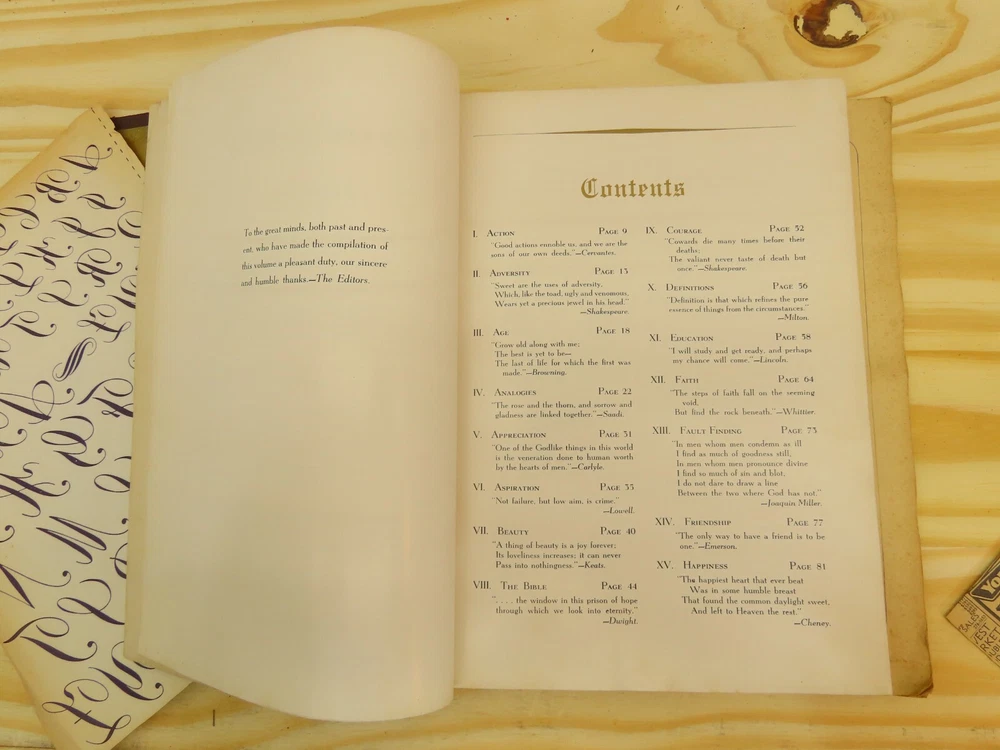 To the great minds, both past and pres-
ent, who have made the compilation of
this volume a pleasant duty, our sincere
and humble thanks.—The Editors.
Contents
I. Action Page 9
"Good actions ennoble us, and we are the
sons of our own deeds."—Cervantes.
II. Adversity Page 13
"Sweet are the uses of adversity,
Which, like the toad, ugly and venomous,
Wears yet a precious jewel in his head."
—Shakespeare.
III. Age Page 18
"Grow old along with me;
The best is yet to be—
The last of life for which the first was
made."—Browning.
IV. Analogies Page 22
"The rose and the thorn, and sorrow and
gladness are linked together."—Saadi.
V. Appreciation Page 31
"One of the Godlike things in this world
is the veneration done to human worth
by the hearts of men."—Carlyle.
VI. Aspiration Page 35
"Not failure, but low aim, is crime."
—Lowell.
VII. Beauty Page 40
"A thing of beauty is a joy forever;
Its loveliness increases; it can never
Pass into nothingness."—Keats.
VIII. The Bible Page 44
". . . . the window in this prison of hope
through which we look into eternity."
—Dwight.
IX. Courage Page 52
"Cowards die many times before their
deaths;
The valiant never taste of death but
once."—Shakespeare.
X. Definitions Page 56
"Definition is that which refines the pure
essence of things from the circumstances."
—Milton.
XI. Education Page 58
"I will study and get ready, and perhaps
my chance will come."—Lincoln.
XII. Faith Page 64
"The steps of faith fall on the seeming
void,
But find the rock beneath."—Whittier.
XIII. Fault Finding Page 73
"In men whom men condemn as ill
I find as much of goodness still,
In men whom men pronounce divine
I find so much of sin and blot,
I do not dare to draw a line
Between the two where God has not."
—Joaquin Miller.
XIV. Friendship Page 77
"The only way to have a friend is to be
one."—Emerson.
XV. Happiness Page 81
"The happiest heart that ever beat
Was in some humble breast
That found the common daylight sweet,
And left to Heaven the rest."
—Cheney.